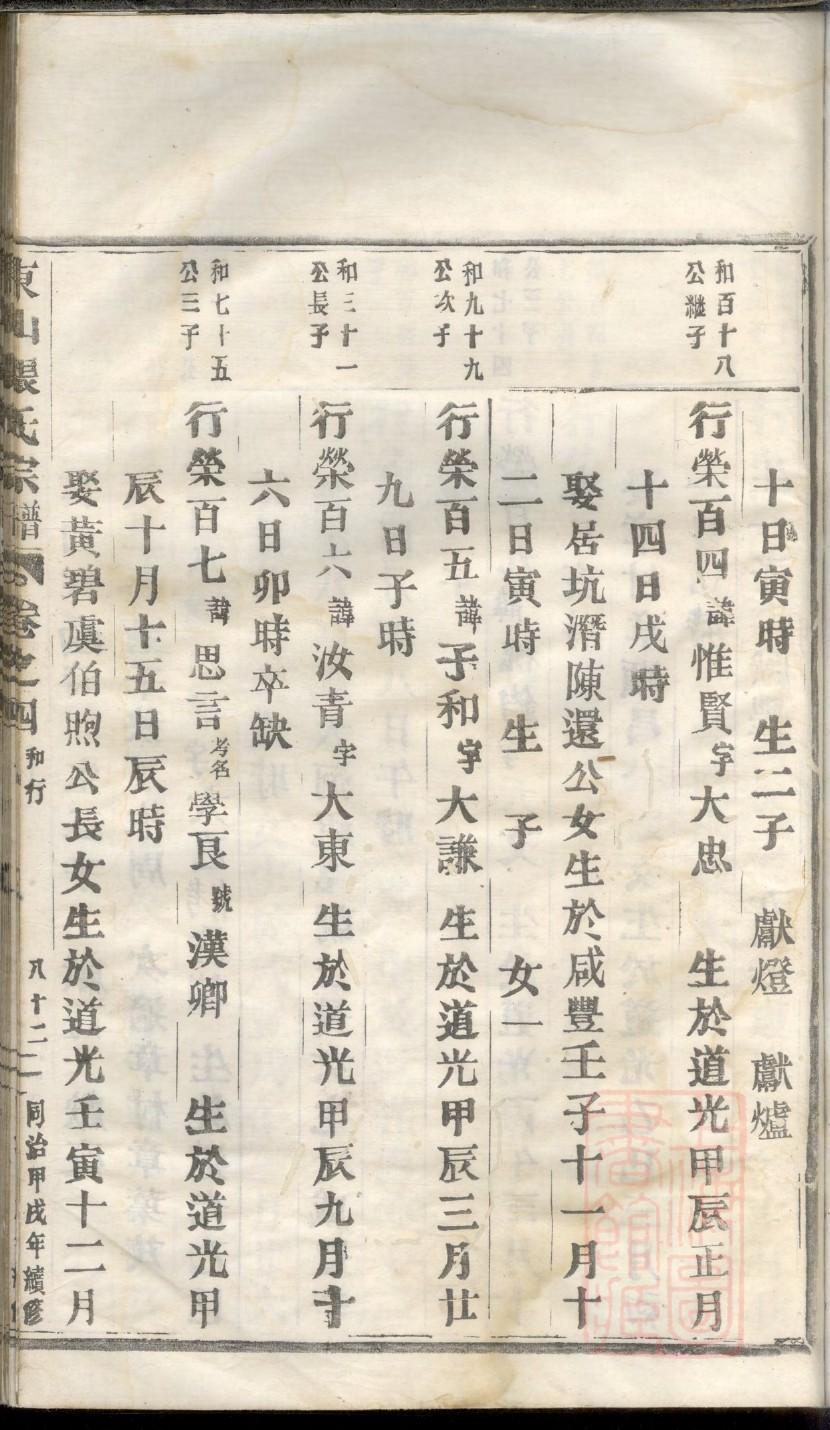 十日寅時 生二子 獻燈 獻爐
和百十八
公繼子
行榮百四諱惟賢字大忠 生於道光甲辰正月
十四日戌時
娶居坑潛陳還公女生於咸豐壬子十一月十
二日寅時 生 子 女一
和九十九
公次子
行榮百五諱子和字大謙 生於道光甲辰三月廿
九日子時
和三十一
公長子
行榮百六諱汝青字大東 生於道光甲辰九月十
六日卯時卒缺
和七十五
公三子
行榮百七諱思言考名學良號漢卿 生於道光甲
辰十月十五日辰時
娶黃碧虞伯煦公長女生於道光壬寅十二月
東山張氏宗譜 卷之四 和行 八十二 同治甲戌年續修